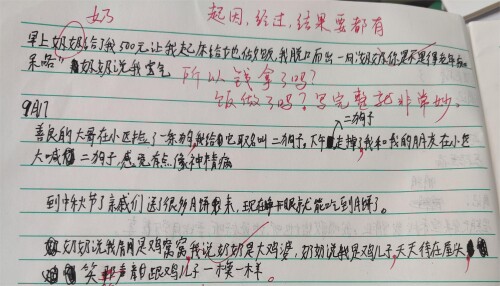 奶
起因,经过,结果要都有
早上奶奶给了我500元让我起床给她做饭,我脱口而出一句"奶奶你是不是得老年
呆啦"奶奶说我霸气
所以钱拿了吗?
饭做了吗?写完整就非常妙。
9月17
二狗子
善良的大哥在小区捡了一条狗我给它取名叫二狗子。下午走掉了我和我的朋友在小区
大喊二狗子,感觉有点像神精病
到中秋节了亲戚们送了很多月饼来,现在睁开眼就能吃到月饼了。
奶奶说我房间是鸡窝,我说奶奶是大鸡婆,奶奶说我是鸡儿子,天天待在屋头
笑声都跟鸡儿子一模一样。